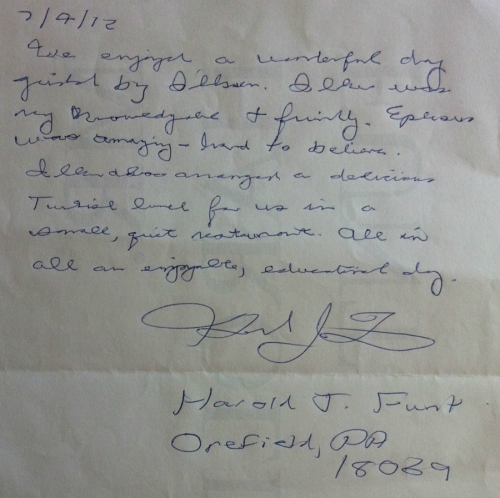 7/4/12
We enjoyed a wonderful day
guided by Ilhan. Ilhan was
very knowledgeable & friendly. Ephesus
was amazing - hard to believe.
also arranged a delicious
Turkish lunch for us in a
small, quiet restaurant. All in
all an enjoyable, educational day.
Harold J. Funt
Orefield, PA
18069